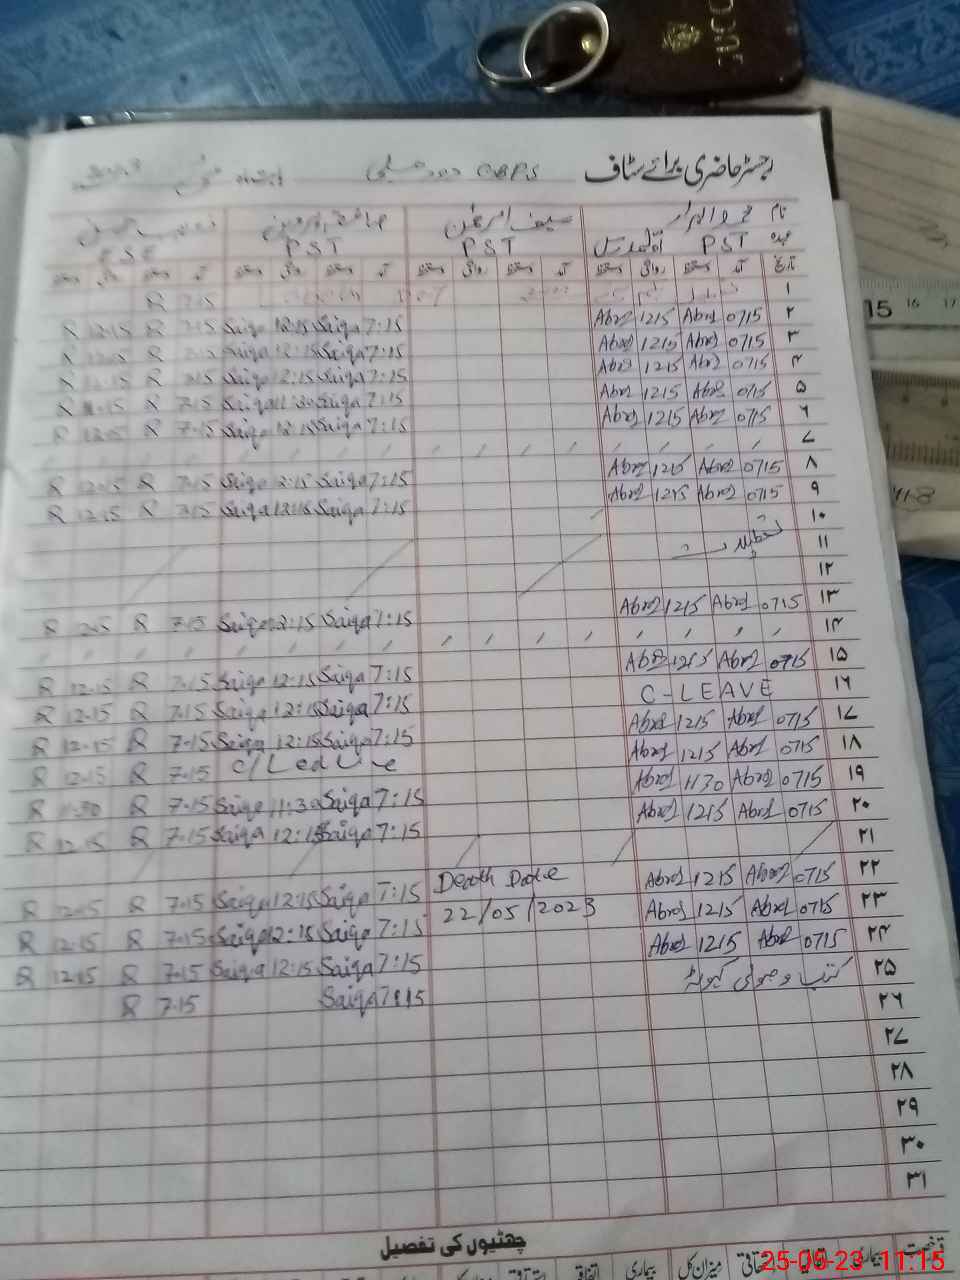 رجسٹر حاضری برائے سٹاف GBPS
نام
عہدہ PST PST PST
تاریخ آمد دستخط روانگی دستخط آمد دستخط روانگی دستخط آمد دستخط روانگی دستخط آمد دستخط روانگی دستخط
۱ 7.15 R
۲ 0715 Abrar 1215 Abrar 7:15 Saiqa 12:15 Saiqa 7.15 R 12.15 R
۳ 0715 Abrar 1215 Abrar 7:15 Saiqa 12:15 Saiqa 7.15 R 12.15 R
۴ 0715 Abrar 1215 Abrar 7:15 Saiqa 12:15 Saiqa 7.15 R 12.15 R
۵ 0715 Abrar 1215 Abrar 7:15 Saiqa 11:30 Saiqa 7.15 R
۶ 0715 Abrar 1215 Abrar 7:15 Saiqa 12:15 Saiqa 7.15 R 12.15 R
۷
۸ 0715 Abrar 1215 Abrar 7:15 Saiqa 12:15 Saiqa 7.15 R 12.15 R
۹ 0715 Abrar 1215 Abrar 7:15 Saiqa 12:15 Saiqa 7.15 R 12.15 R
۱۰
۱۱ تعطیلات
۱۲
۱۳ 0715 Abrar 1215 Abrar 7:15 Saiqa 12:15 Saiqa 7.15 R 12.15 R
۱۴
۱۵ 0715 Abrar 1215 Abrar 7:15 Saiqa 12:15 Saiqa 7.15 R 12.15 R
۱۶ C-LEAVE 7:15 Saiqa 12:15 Saiqa 7.15 R 12.15 R
۱۷ 0715 Abrar 1215 Abrar 7:15 Saiqa 12:15 Saiqa 7.15 R 12.15 R
۱۸ 0715 Abrar 1215 Abrar C/Leave 7.15 R 12.15 R
۱۹ 0715 Abrar 1130 Abrar 7:15 Saiqa 11:30 Saiqa 7.15 R 11.30 R
۲۰ 0715 Abrar 1215 Abrar 7:15 Saiqa 12:15 Saiqa 7.15 R 12.15 R
۲۱
۲۲ 0715 Abrar 1215 Abrar Death Date 7:15 Saiqa 12:15 Saiqa 7.15 R 12.15 R
۲۳ 0715 Abrar 1215 Abrar 22/05/2023 7:15 Saiqa 12:15 Saiqa 7.15 R 12.15 R
۲۴ 0715 Abrar 1215 Abrar 7:15 Saiqa 12:15 Saiqa 7.15 R 12.15 R
۲۵ کتب وصولی 7:15 Saiqa 7.15 R
۲۶
۲۷
۲۸
۲۹
۳۰
۳۱
چھٹیوں کی تفصیل
بیماری اتفاقی میزان کل بیماری اتفاقیہ
25-05-23 11:15
GUCCI
15 16 17